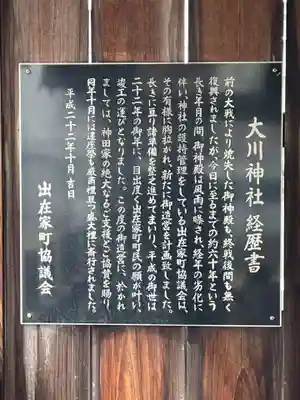 大川神社 経歴書
前の大戦により焼失した御神殿も、終戦後間も無く
復興されましたが、今日に至るまでの約六十年という
長き年月の間、御神殿は風雨に曝され、経年の劣化に
伴い、神社の護持管理をしている出在家町協議会は、
その有様に胸労かれ、新たに御造営を計画致しました。
長きに亘り諸準備を整え進めてまいり、平成の御世は
二十二年の御年に、目出度く出在家町町民の願が叶い、
竣工の運びとなりました。この度の御造営に、於かれ
ましては、神田家の絶大なるご支援とご協賛を賜り
同年十月には遷座祭も厳粛裡且つ盛大裡に斎行されました。
平成二十二年十月吉日
出在家町協議会